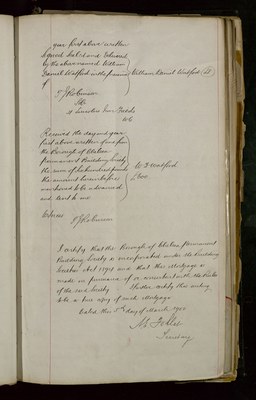 year first above written
Signed Sealed and Delivered
by the abovenamed William
Daniel Watford in the presence William Daniel Watford LS
of
P J Robinson
11 Lincolns Inn Fields
WC
Received the day and year
first above written of and from
the Borough of Chelsea
permanent Building Society
the sum of hundred pounds W D Watford
the amount
expressed to be advanced
and lent to me
Witness
P J Robinson
I certify that the Borough of Chelsea Permanent
Building Society is incorporated under the Building
Societies Act 1874 and that this Mortgage is
made in pursuance of & in accordance with the Rules
of the said Society I further certify this writing
to be a true copy of such Mortgage
Dated this day of March 1900
Secretary